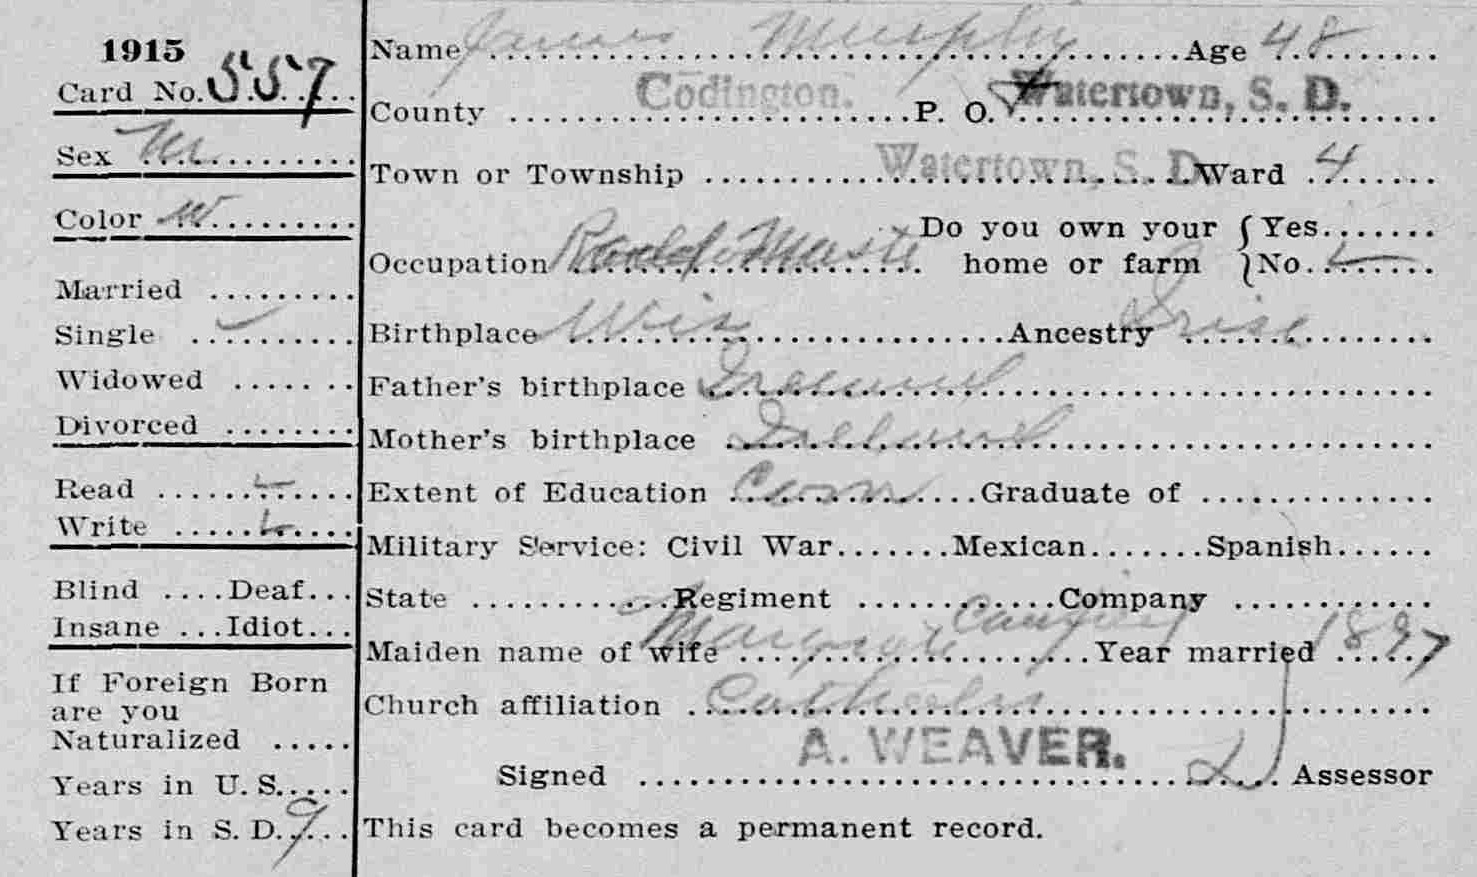 1915
Card No. 557
Sex M
Color W
Married
Single ✓
Widowed
Divorced
Read ✓
Write ✓
Blind Deaf
Insane Idiot
If Foreign Born
are you
Naturalized
Years in U. S.
Years in S. D. 9
Name James Murphy Age 48
County Codington. P. O. Watertown, S. D.
Town or Township Watertown, S. D. Ward 4
Do you own your { Yes
Occupation home or farm { No ✓
Birthplace Wis Ancestry Irish
Father's birthplace Ireland
Mother's birthplace Ireland
Extent of Education Com Graduate of
Military Service: Civil War Mexican Spanish
State Regiment Company
Maiden name of wife Year married 1897
Church affiliation Catholic
A. WEAVER.
Signed Assessor
This card becomes a permanent record.